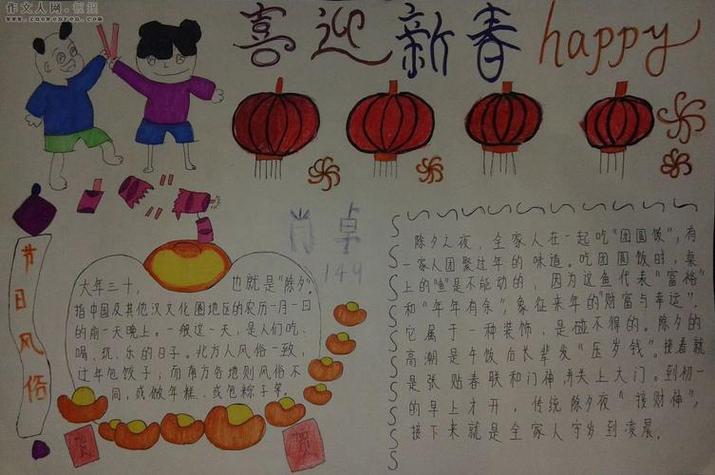 作文人网
www.zuowenren.com
喜迎新春happy
节日风俗
肖卓
149
大年三十, 也就是“除夕”。
指中国及其他汉文化圈地区的农历一月一日
的前一天晚上。一般这一天,是人们吃、
喝、玩、乐的日子。北方人风俗一致,
过年包饺子,而南方各地则风俗不
同,或做年糕、或包粽子等。
贺
贺
除夕之夜,全家人在一起吃“团圆饭”,有
一家人团聚过年的味道。吃团圆饭时,桌
上的“鱼”是不能动的,因为这鱼代表“富裕”
和“年年有余”,象征来年的“财富与幸运”,
它属于一种装饰,是碰不得的。除夕的
高潮是午饭后长辈发“压岁钱”。接着就
是张贴春联和门神,关上大门。到初一
的早上才开,传统除夕夜“接财神”,
接下来就是全家人守岁到凌晨。